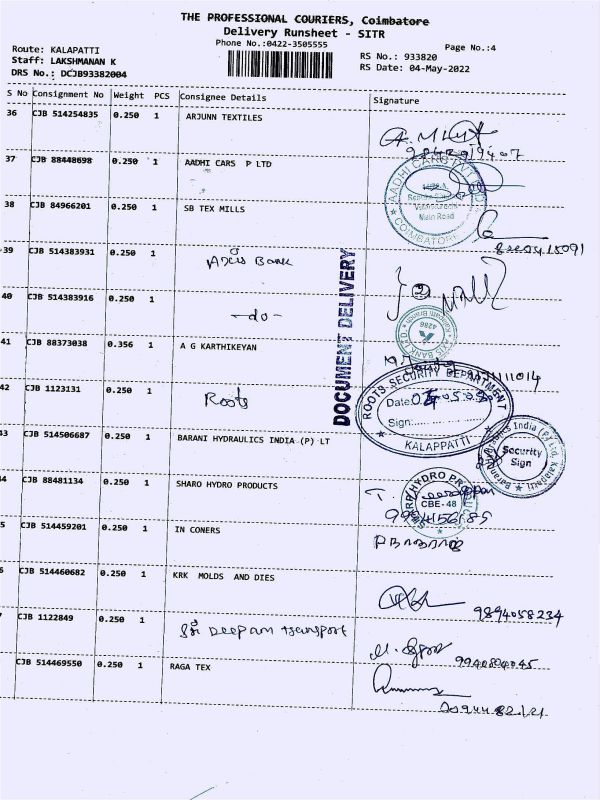 THE PROFESSIONAL COURIERS, Coimbatore
Delivery Runsheet - SITR
Phone No.:0422-3505555
Page No.:4
Route: KALAPATTI
Staff: LAKSHMANAN K
DRS No.: DCJB93382004
RS No.: 933820
RS Date: 04-May-2022
S No Consignment No Weight PCS Consignee Details Signature
36 CJB 514254835 0.250 1 ARJUNN TEXTILES
37 CJB 88448698 0.250 1 AADHI CARS P LTD
AADHI CARS PVT LTD
Main Road
COIMBATORE
38 CJB 84966201 0.250 1 SB TEX MILLS
39 CJB 514383931 0.250 1 Axis Bank
40 CJB 514383916 0.250 1 -do-
AXIS BANK LTD
4286
DOCUMENT DELIVERY
41 CJB 88373038 0.356 1 A G KARTHIKEYAN
42 CJB 1123131 0.250 1 Roots
ROOTS SECURITY DEPARTMENT
Date:
Sign:
KALAPPATTI
43 CJB 514506687 0.250 1 BARANI HYDRAULICS INDIA (P) LT
Security
Sign
44 CJB 88481134 0.250 1 SHARO HYDRO PRODUCTS
CBE-48
5 CJB 514459201 0.250 1 IN CONERS
6 CJB 514460682 0.250 1 KRK MOLDS AND DIES
9894058234
7 CJB 1122849 0.250 1 Sri Deepam transport
CJB 514469550 0.250 1 RAGA TEX